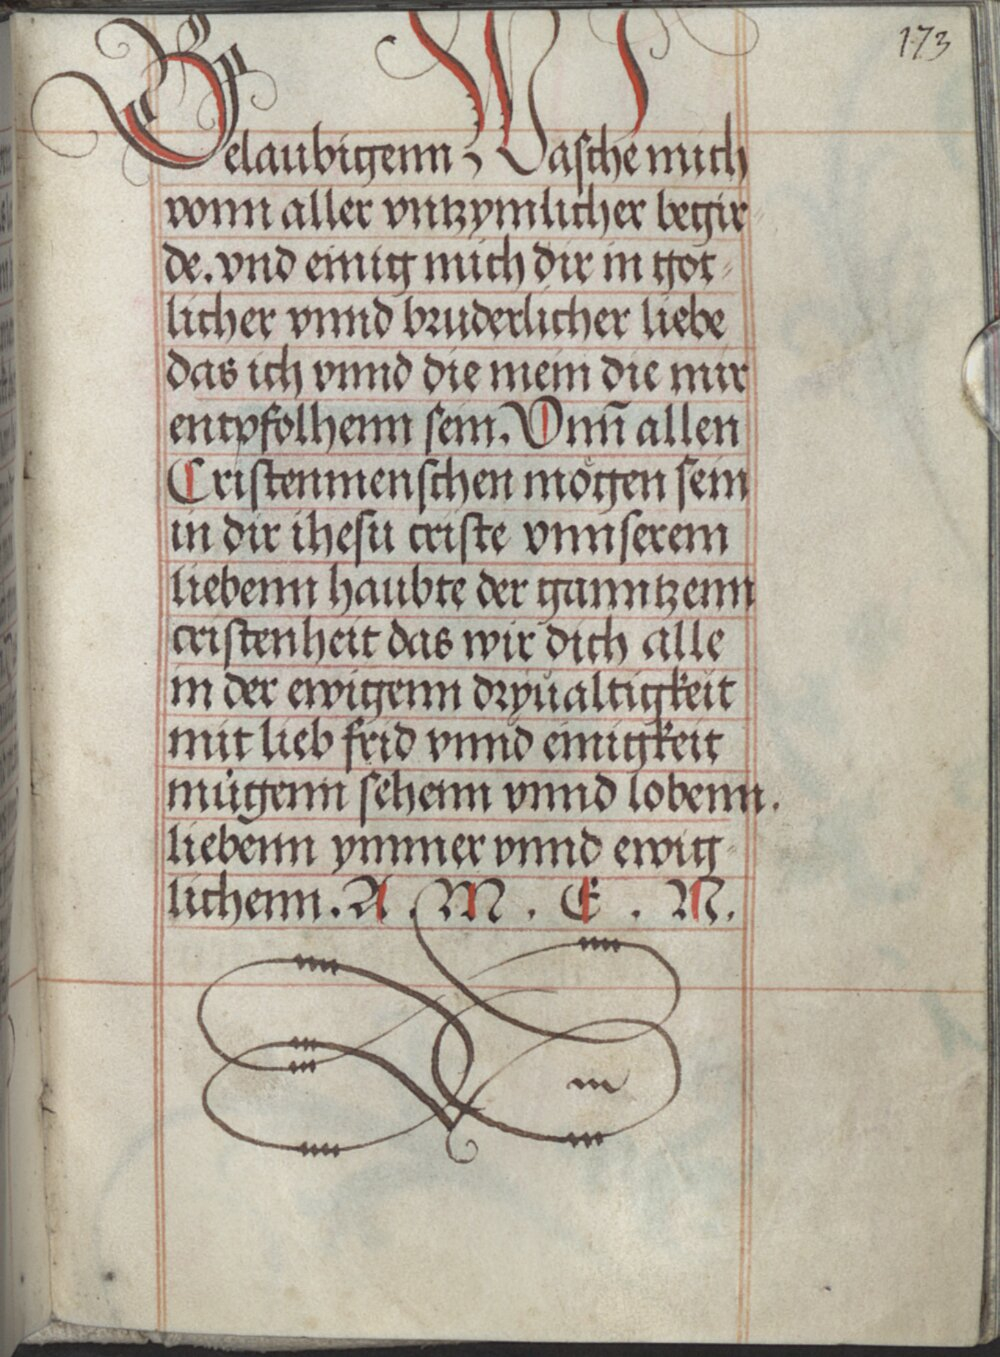 173
Gelaubigenn Wasche mich
vonn aller vntzymlicher begir⸗
de. vnd einig mich dir in got⸗
licher vnnd bruderlicher liebe
das ich vnnd die mein die mir
entpfolhenn sein. Vnn̄ allen
Cristenmenschen mögen sein
in dir ihesu criste vnnserem
liebenn haubte der ganntzenn
cristenheit das wir dich alle
in der ewigenn dryůaltigkeit
mit lieb frid vnnd einigkeit
mügenn sehenn vnnd lobenn.
liebenn ymmer vnnd ewig⸗
lichenn. A. M. E. N.